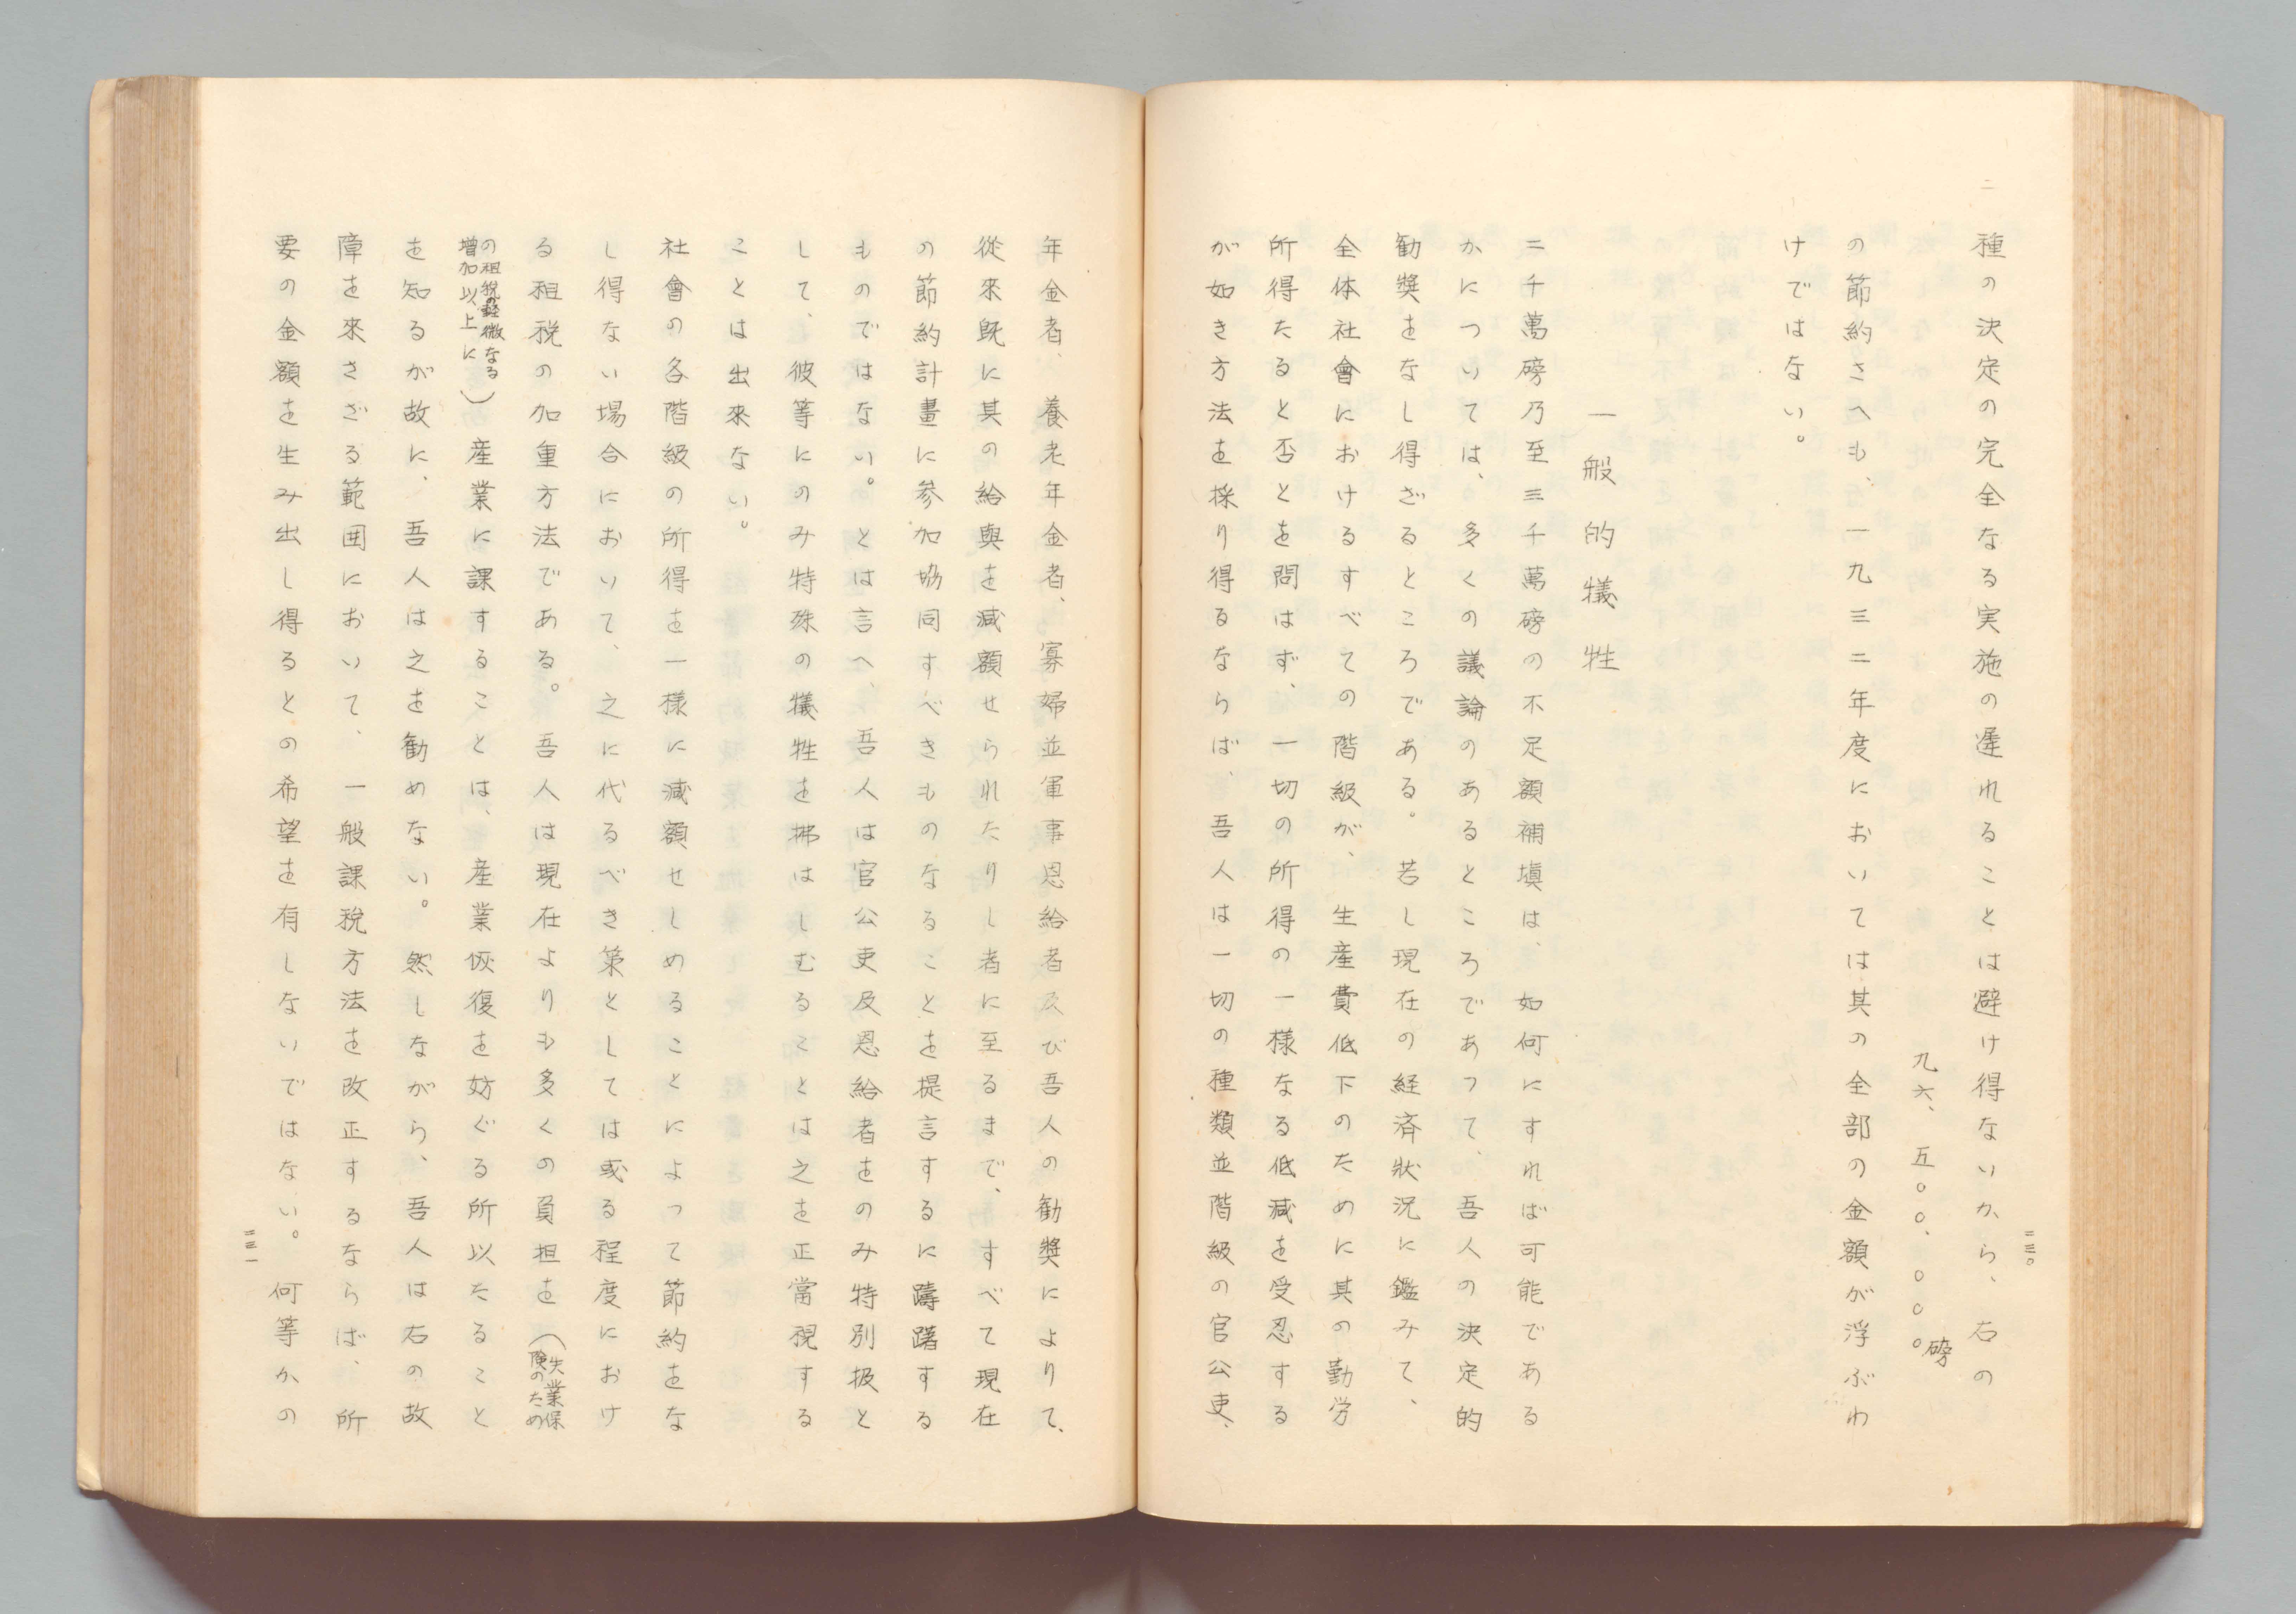 二三〇
種の決定の完全なる実施の遅れることは避け得ないから、右の
九六、五〇〇、〇〇〇磅
の節約さへも、一九三二年度においては其の全部の金額が浮ぶわ
けではない。
一般的犠牲
二千萬磅乃至三千萬磅の不足額補塡は、如何にすれば可能である
かについては、多くの議論のあるところであつて、吾人の決定的
勧奬をなし得ざるところである。若し現在の経済狀況に鑑みて、
全体社會におけるすべての階級が、生産費低下のために其の勤労
所得たると否とを問はず、一切の所得の一様なる低減を受忍する
が如き方法を採り得るならば、吾人は一切の種類並階級の官公吏、
年金者、養老年金者、寡婦並軍事恩給者及び吾人の勧奬によりて、
從來既に其の給與を減額せられたりし者に至るまで、すべて現在
の節約計畫に參加協同すべきものなることを提言するに躊躇する
ものではない。とは言へ、吾人は官公吏及恩給者をのみ特別扱と
して、彼等にのみ特殊の犠牲を拂はしむることは之を正當視する
ことは出來ない。
社會の各階級の所得を一様に減額せしめることによつて節約をな
し得ない場合において、之に代るべき策としては或る程度におけ
る租税の加重方法である。吾人は現在よりも多くの負担を(失業保
険のため
の租税の軽微なる
増加以上に)産業に課することは、産業恢復を妨ぐる所以たること
を知るが故に、吾人は之を勧めない。然しながら、吾人は右の故
障を來さざる範囲において、一般課税方法を改正するならば、所
要の金額を生み出し得るとの希望を有しないではない。何等かの
二三一